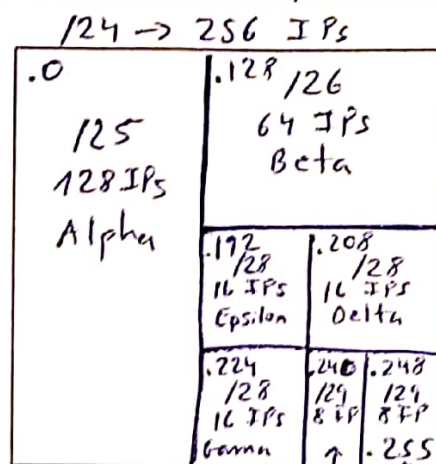 /24 -> 256 IPs
.0
/25
128 IPs
Alpha
.128 /26
64 IPs
Beta
.192
/28
16 IPs
Epsilon
.208
/28
16 IPs
Delta
.224
/28
16 IPs
Gamma
.240
/29
8 IP
↑
.248
/29
8 IP
.255